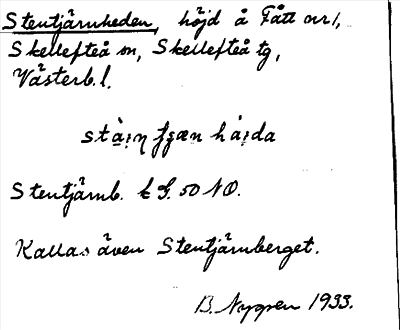 Stentjärnheden, höjd å Fått
Skellefteå sn, Skellefteå tg,
Västerb. l.
Stentjärnb. t G. 50 NO.
Kallas även Stentjärnberget.
B. Nygren 1933.